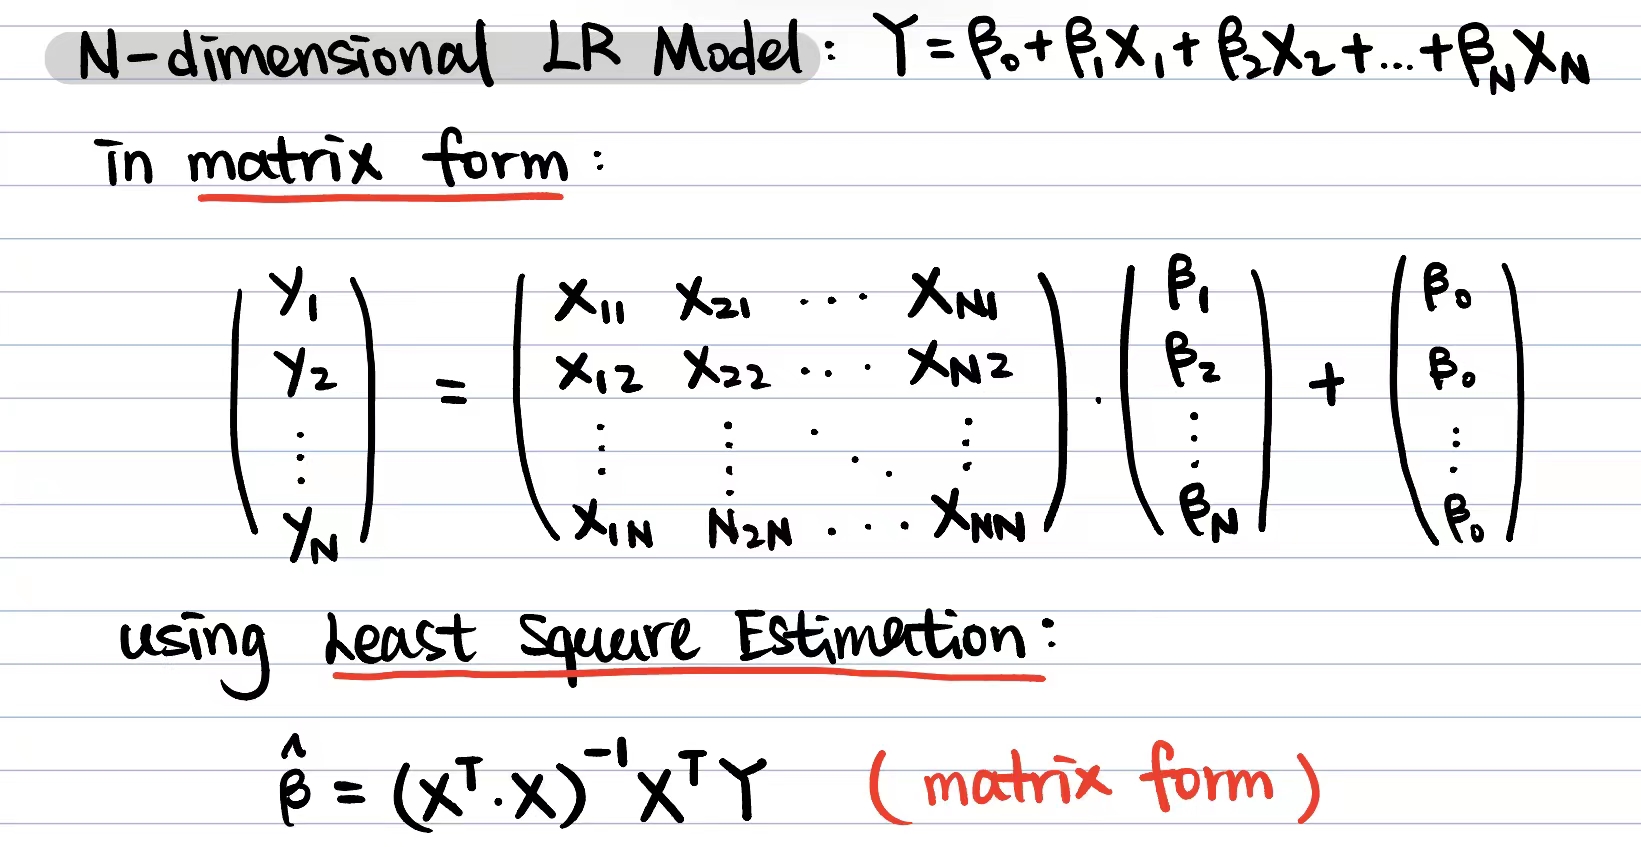 N-dimensional LR Model: Y = β₀ + β₁X₁ + β₂X₂ + ... + β_N X_N
in matrix form:
( y₁ ) = ( X₁₁ X₂₁ ... X_N1 ) · ( β₁ ) + ( β₀ )
( y₂ ) ( X₁₂ X₂₂ ... X_N2 ) ( β₂ ) ( β₀ )
( ⋮ ) ( ⋮ ⋮ ⋱ ⋮ ) ( ⋮ ) ( ⋮ )
( y_N ) ( X_1N N_2N ... X_NN ) ( β_N ) ( β₀ )
using Least Square Estimation:
β̂ = (X^T · X)^-1 X^T Y (matrix form)